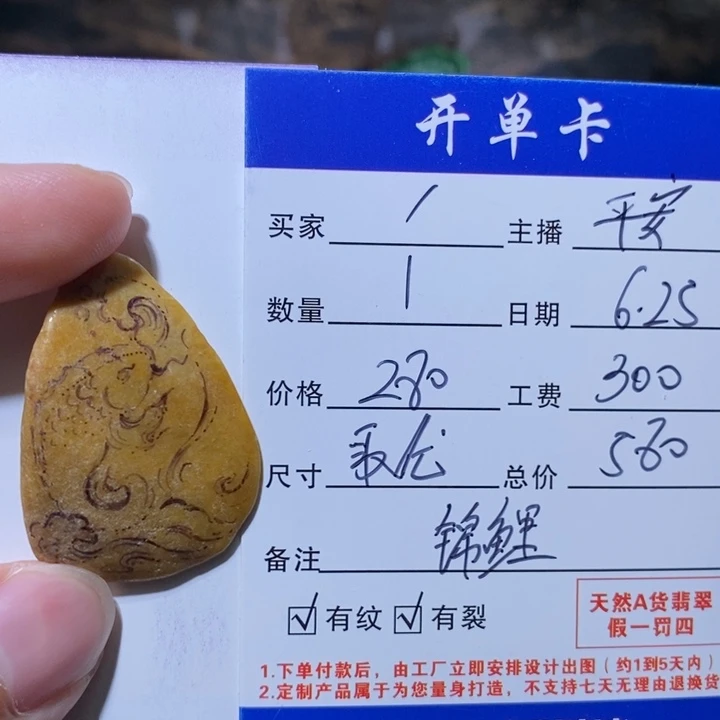 开单卡
买家 / 主播 平安
数量 1 日期 6.25
价格 260 工费 300
尺寸 总价 560
备注 锦鲤
☑有纹 ☑有裂
天然A货翡翠
假一罚四
1.下单付款后，由工厂立即安排设计出图（约1到5天内）
2.定制产品属于为您量身打造，不支持七天无理由退换货